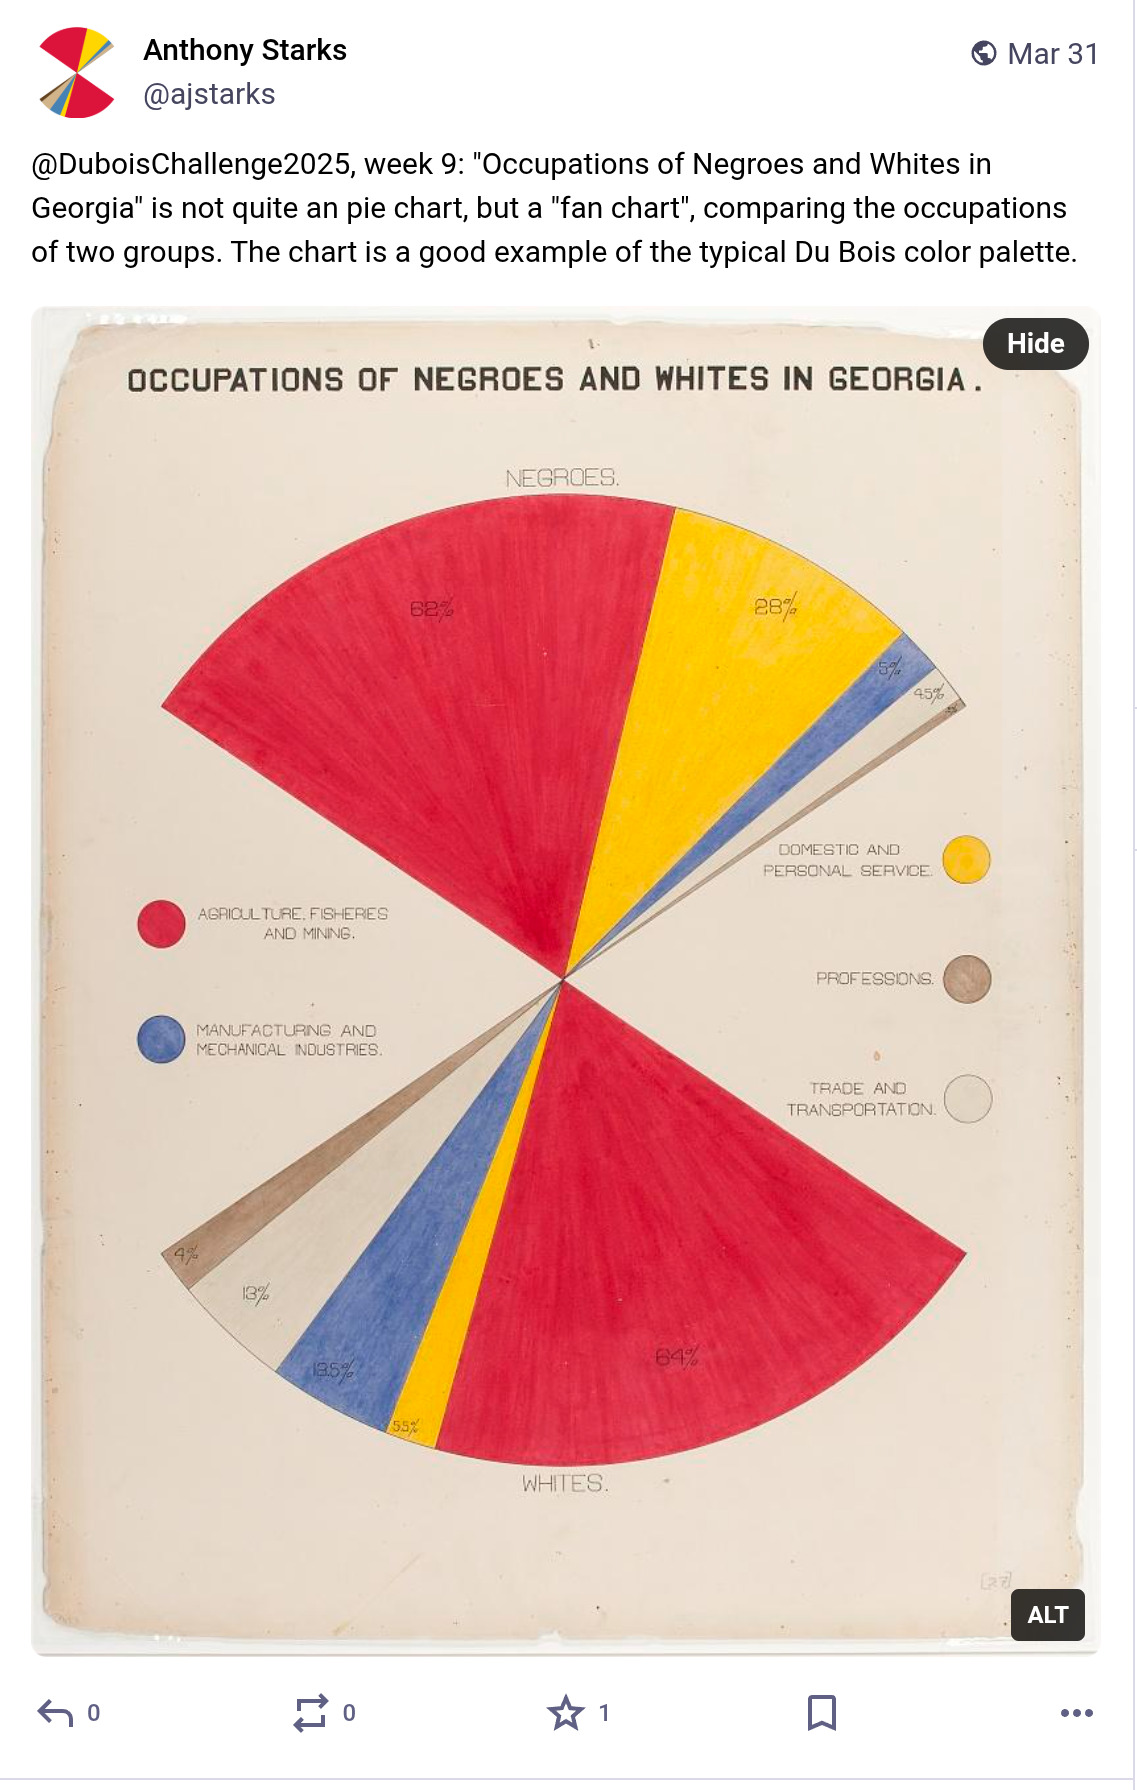 Anthony Starks
Mar 31
@ajstarks
@DuboisChallenge2025, week 9: "Occupations of Negroes and Whites in
Georgia" is not quite an pie chart, but a "fan chart", comparing the occupations
of two groups. The chart is a good example of the typical Du Bois color palette.
Hide
OCCUPATIONS OF NEGROES AND WHITES IN GEORGIA.
NEGROES.
62%
28%
5%
4.5%
DOMESTIC AND
PERSONAL SERVICE.
AGRICULTURE, FISHERIES
AND MINING.
PROFESSIONS.
MANUFACTURING AND
MECHANICAL INDUSTRIES.
TRADE AND
TRANSPORTATION.
4%
13%
13.5%
5.5%
64%
WHITES.
ALT
0
0
1